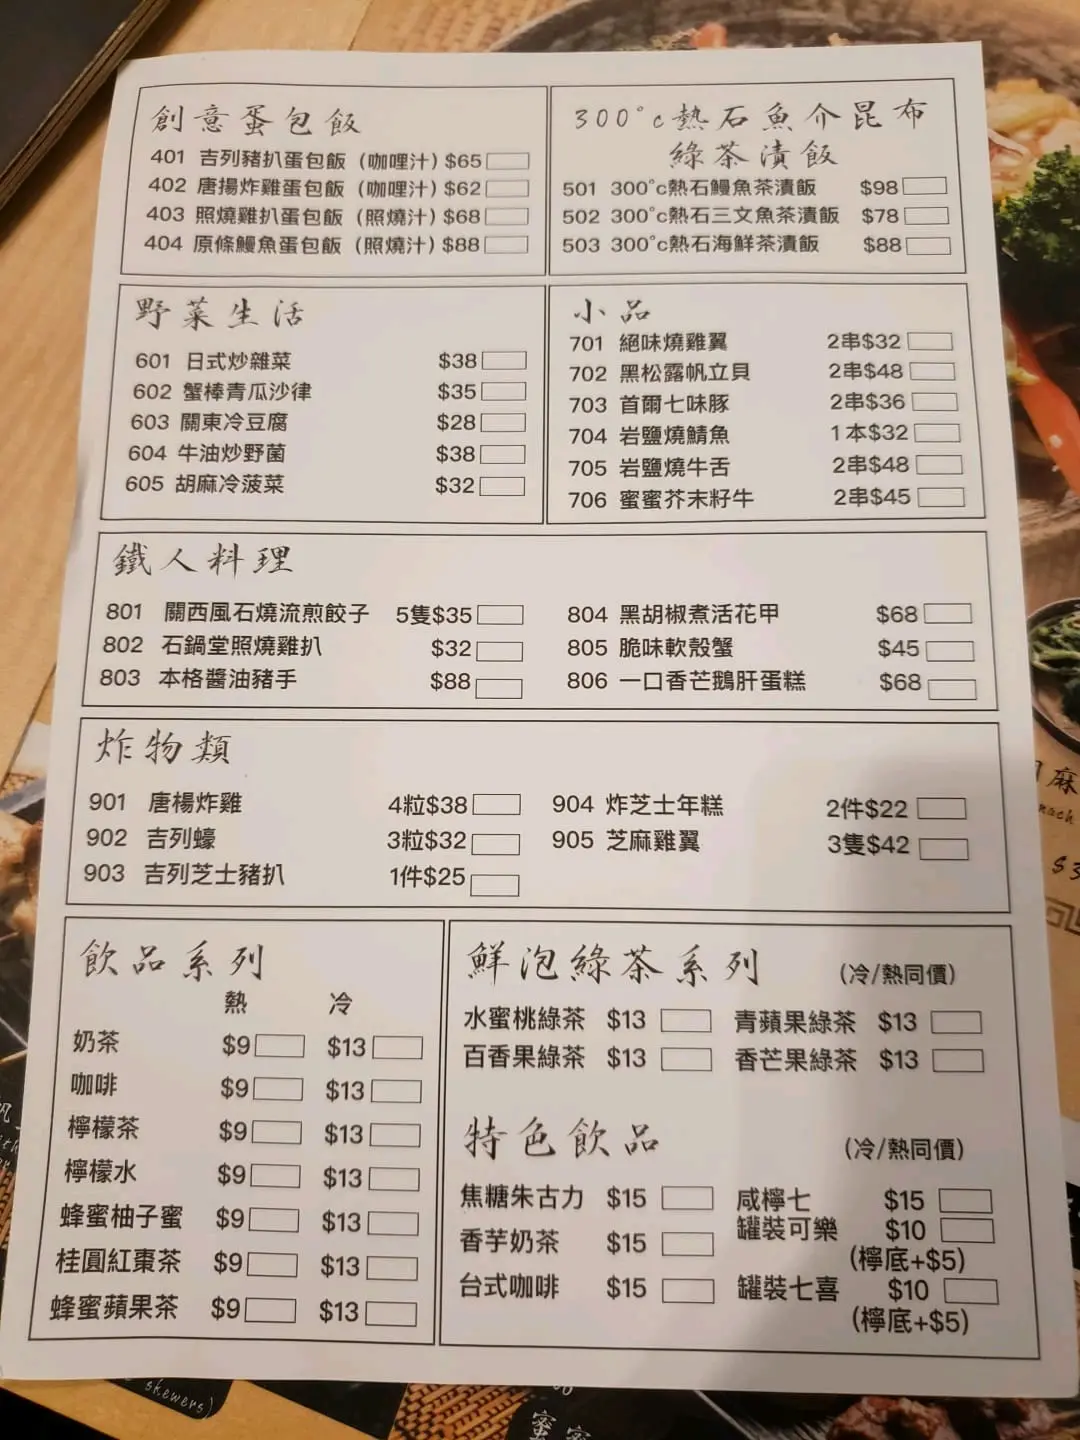 創意蛋包飯
401 吉列豬扒蛋包飯 (咖哩汁) $65
402 唐揚炸雞蛋包飯 (咖哩汁) $62
403 照燒雞扒蛋包飯 (照燒汁) $68
404 原條鰻魚蛋包飯 (照燒汁) $88
300°c熱石魚介昆布
綠茶漬飯
501 300°c熱石鰻魚茶漬飯 $98
502 300°c熱石三文魚茶漬飯 $78
503 300°c熱石海鮮茶漬飯 $88
野菜生活
601 日式炒雜菜 $38
602 蟹棒青瓜沙律 $35
603 關東冷豆腐 $28
604 牛油炒野菌 $38
605 胡麻冷菠菜 $32
小品
701 絕味燒雞翼 2串$32
702 黑松露帆立貝 2串$48
703 首爾七味豚 2串$36
704 岩鹽燒鯖魚 1本$32
705 岩鹽燒牛舌 2串$48
706 蜜蜜芥末籽牛 2串$45
鐵人料理
801 關西風石燒流煎餃子 5隻$35
802 石鍋堂照燒雞扒 $32
803 本格醬油豬手 $88
804 黑胡椒煮活花甲 $68
805 脆味軟殼蟹 $45
806 一口香芒鵝肝蛋糕 $68
炸物類
901 唐楊炸雞 4粒$38
902 吉列蠔 3粒$32
903 吉列芝士豬扒 1件$25
904 炸芝士年糕 2件$22
905 芝麻雞翼 3隻$42
飲品系列
熱 冷
奶茶 $9 $13
咖啡 $9 $13
檸檬茶 $9 $13
檸檬水 $9 $13
蜂蜜柚子蜜 $9 $13
桂圓紅棗茶 $9 $13
蜂蜜蘋果茶 $9 $13
鮮泡綠茶系列 (冷/熱同價)
水蜜桃綠茶 $13 青蘋果綠茶 $13
百香果綠茶 $13 香芒果綠茶 $13
特色飲品 (冷/熱同價)
焦糖朱古力 $15 咸檸七 $15
罐裝可樂 $10
香芋奶茶 $15 (檸底+$5)
台式咖啡 $15 罐裝七喜 $10
(檸底+$5)
skewers)